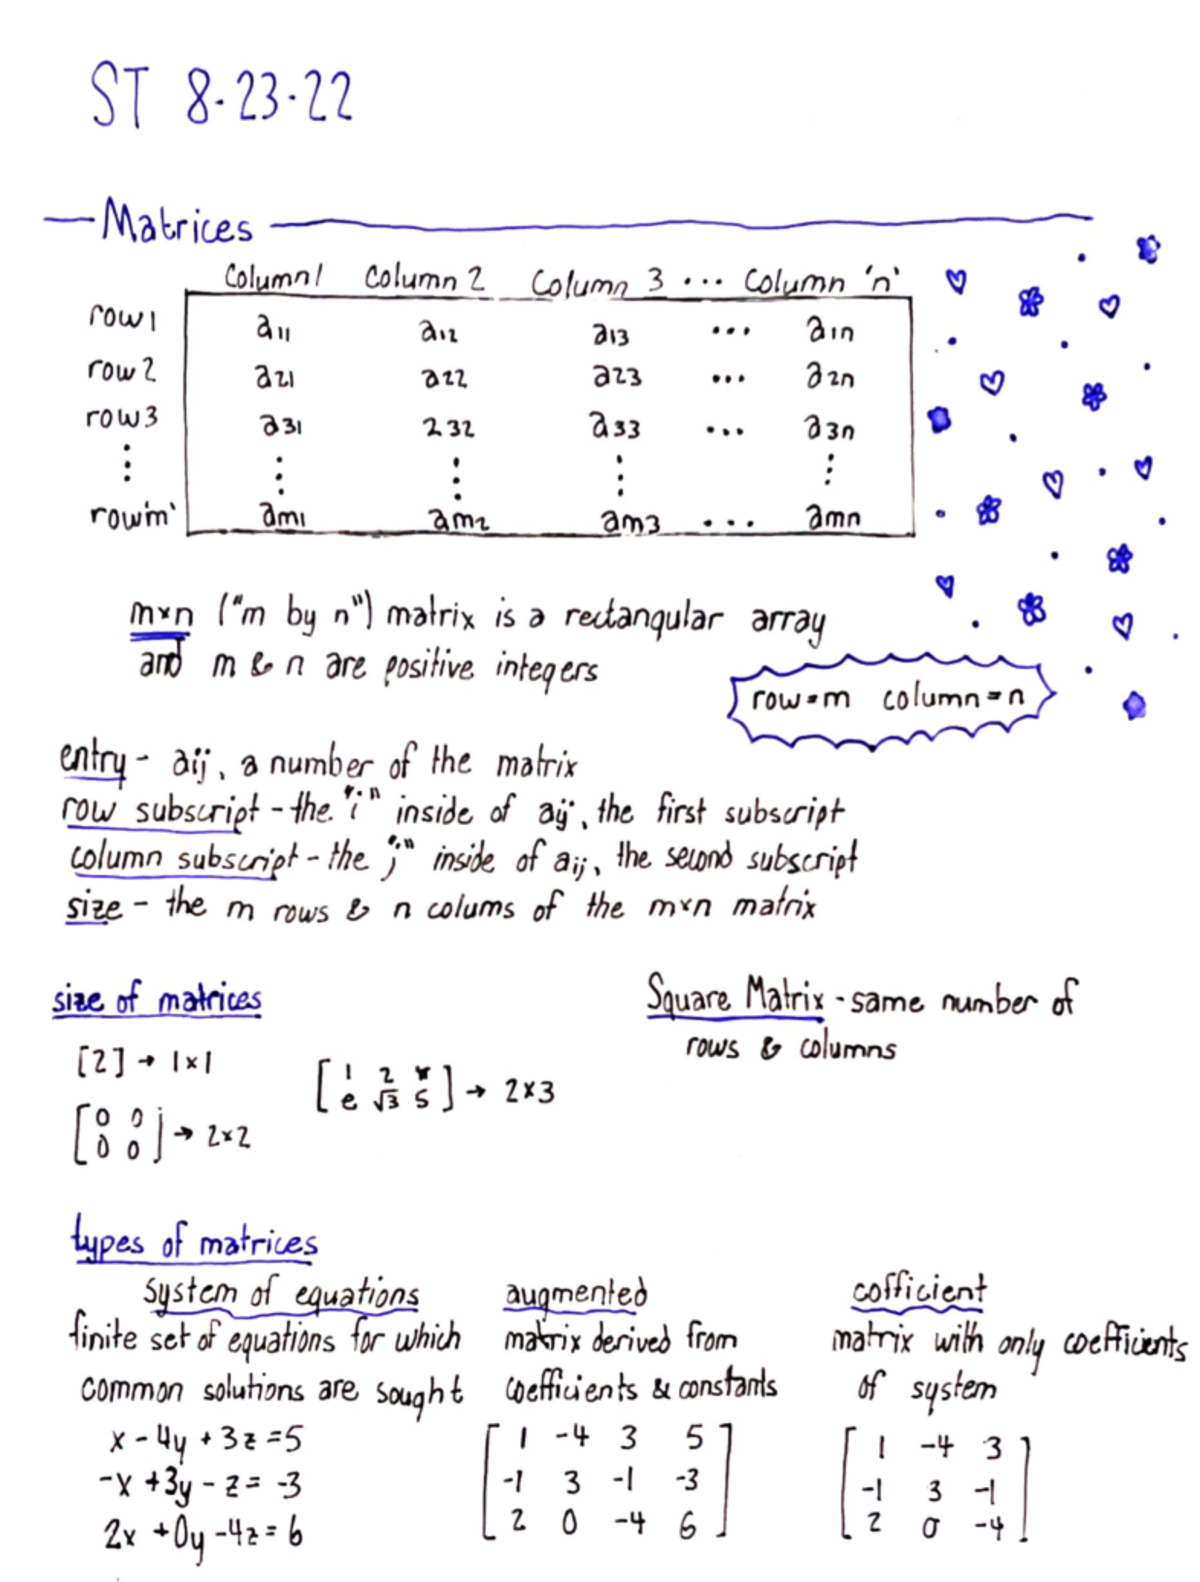 ST 8-23-22
Matrices
Column 1 Column 2 Column 3 ... Column 'n'
row 1 a11 a12 a13 ... a1n
row 2 a21 a22 a23 ... a2n
row 3 a31 232 a33 ... a3n
⋮ ⋮ ⋮ ⋮ ⋮
row 'm' am1 am2 am3 ... amn
m×n ("m by n") matrix is a rectangular array
and m & n are positive integers
row=m column=n
entry - aij, a number of the matrix
row subscript - the "i" inside of aij, the first subscript
column subscript - the "j" inside of aij, the second subscript
size - the m rows & n colums of the m×n matrix
size of matrices
[2] → 1×1
[0 0
0 0] → 2×2
[1 2 π
e √3 5] → 2×3
Square Matrix - same number of
rows & columns
types of matrices
system of equations
finite set of equations for which
common solutions are sought
x - 4y + 3z = 5
-x + 3y - z = -3
2x + 0y - 4z = 6
augmented
matrix derived from
coefficients & constants
[1 -4 3 5
-1 3 -1 -3
2 0 -4 6]
cofficient
matrix with only coefficients
of system
[1 -4 3
-1 3 -1
2 0 -4]